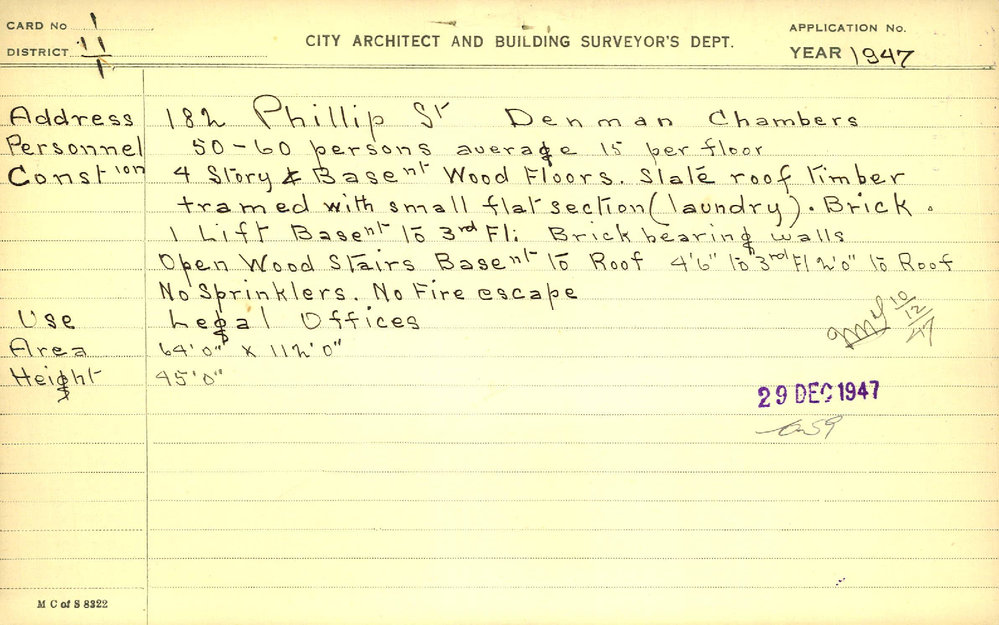 CARD No 1
DISTRICT 11/1
CITY ARCHITECT AND BUILDING SURVEYOR'S DEPT.
APPLICATION No.
YEAR 1947
Address 182 Phillip St Denman Chambers
Personnel 50-60 persons average 15 per floor
Constion 4 Story & Basent Wood Floors. Slate roof timber
framed with small flat section (laundry). Brick.
1 Lift Basent to 3rd Fl: Brick bearing walls
Open Wood Stairs Basent to Roof 4'6" to 3rd Fl 2'0" to Roof
No Sprinklers. No Fire escape
Use Legal Offices
10/12/47
Area 64'0" x 112'0"
Height 45'0"
29 DEC 1947
M C of S 8322